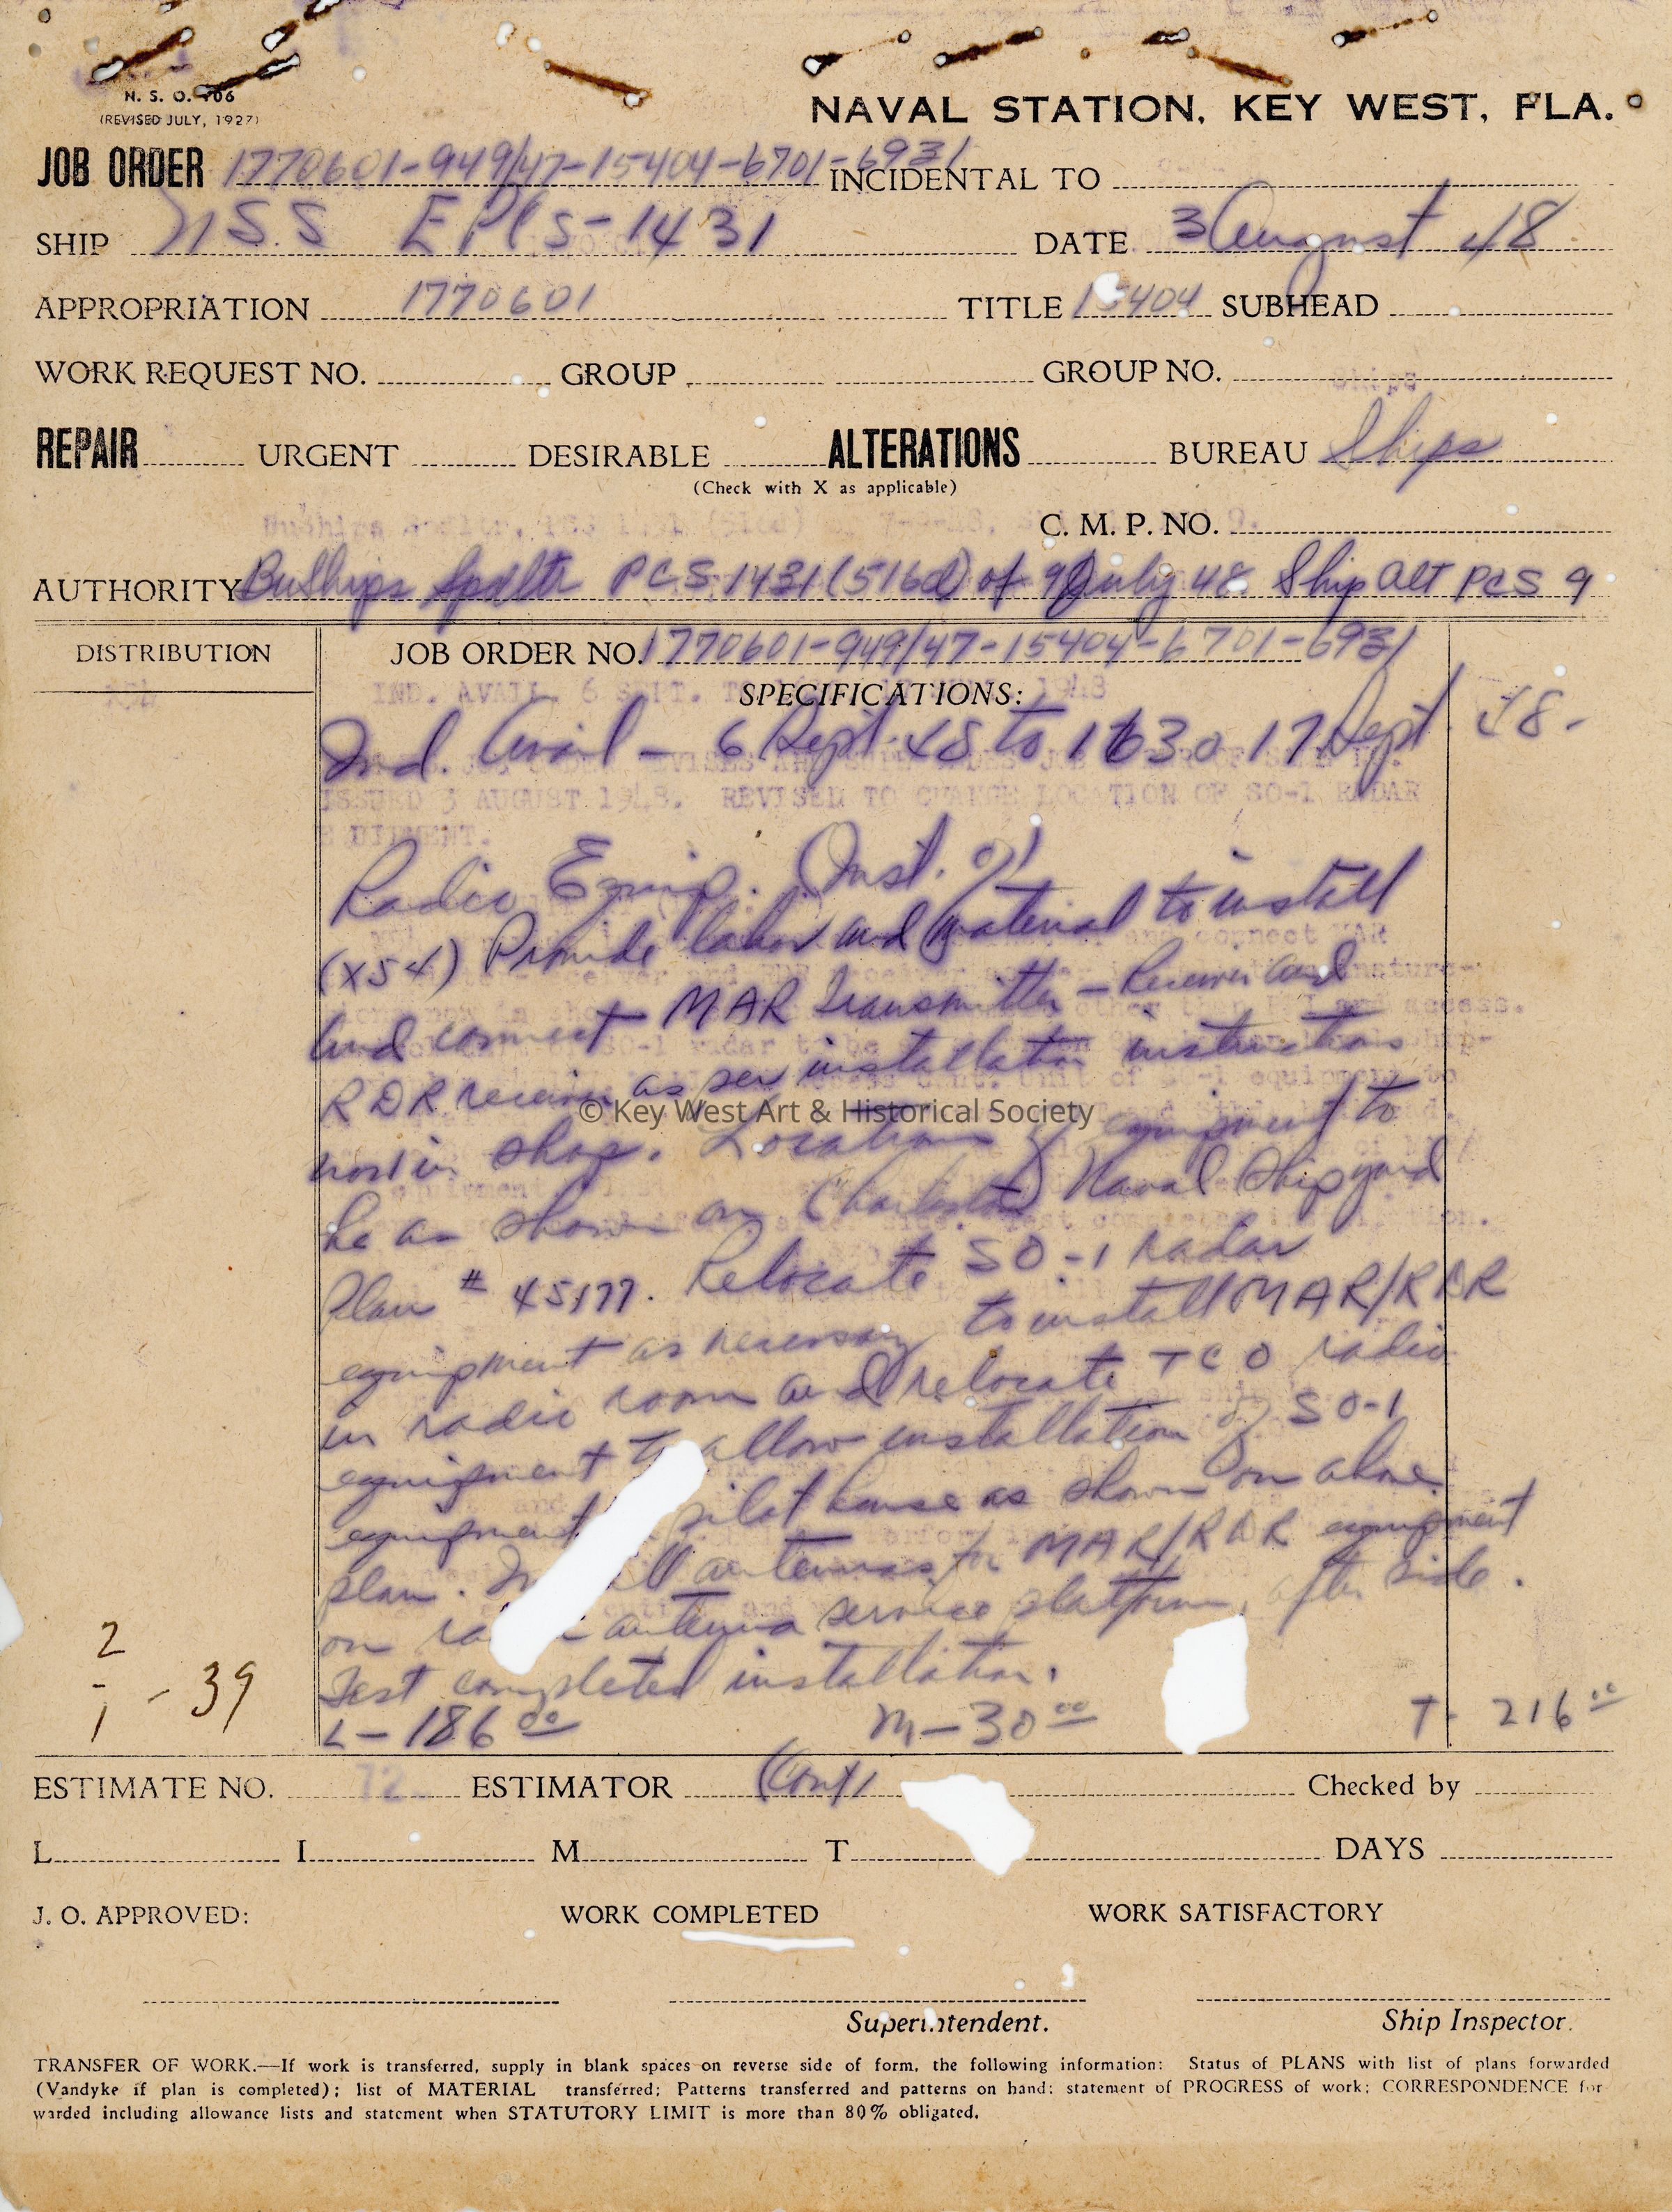 N. S. O. 106
(REVISED JULY, 1927)
NAVAL STATION, KEY WEST, FLA.
JOB ORDER 1770601-949/47-15404-6701-6931 INCIDENTAL TO
SHIP USS EPCS-1431 DATE 3 August 48
APPROPRIATION 1770601 TITLE 15404 SUBHEAD
WORK REQUEST NO. GROUP GROUP NO.
REPAIR URGENT DESIRABLE ALTERATIONS BUREAU Ships
(Check with X as applicable)
C. M. P. NO.
AUTHORITY BuShips Spdltr PCS 1431 (516d) of 9 July 48 Ship Alt PCS 9
DISTRIBUTION
JOB ORDER NO. 1770601-949/47-15404-6701-6931
IND. AVAIL. 6 SEPT. 1948
SPECIFICATIONS:
Ind. Avail - 6 Sept. 48 to 1630 17 Sept 48-
ISSUED 3 AUGUST 1948. REVISED TO CHANGE LOCATION OF SO-1 RADAR
Radio Equip. (Inst. of)
(X54) Provide labor and material to install
and connect MAR Transmitter - Receiver and
RDR receiver as per installation instructions
now in shop. Location of equipment to
be as shown on Charleston Naval Shipyard
Plan # 45177. Relocate SO-1 radar
equipment as necessary to install MAR/RDR
in radio room and relocate TCO radio
equipment to allow installation of SO-1
equipment pilot house as shown on above
plan. antennas for MAR/RDR equipment
on antenna service platform, after side.
Test completed installation.
L-186 00 M-30 00 T- 216 00
2
- - 39
1
ESTIMATE NO. 72 ESTIMATOR Checked by
L I M T DAYS
J. O. APPROVED: WORK COMPLETED WORK SATISFACTORY
Superintendent. Ship Inspector.
TRANSFER OF WORK.—If work is transferred, supply in blank spaces on reverse side of form, the following information: Status of PLANS with list of plans forwarded
(Vandyke if plan is completed); list of MATERIAL transferred; Patterns transferred and patterns on hand; statement of PROGRESS of work; CORRESPONDENCE for
warded including allowance lists and statement when STATUTORY LIMIT is more than 80% obligated.
© Key West Art & Historical Society